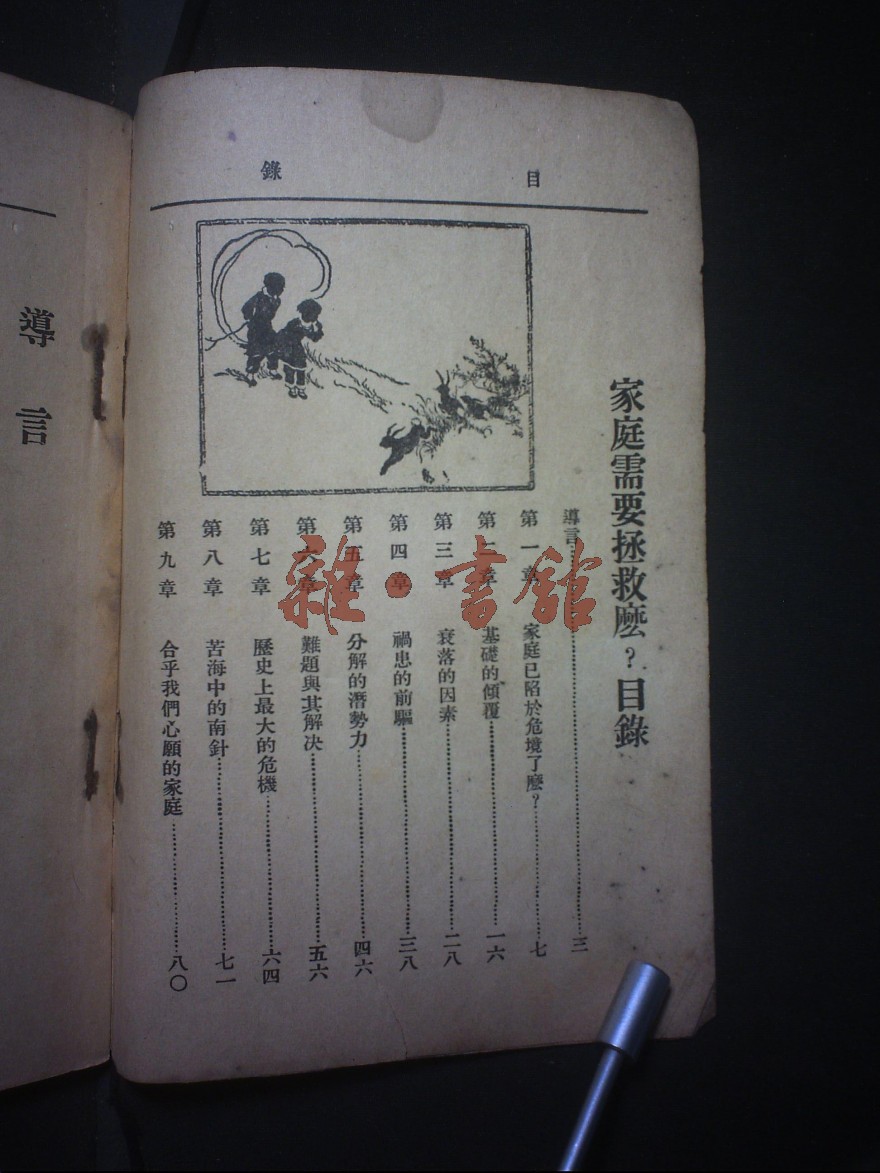 目錄
家庭需要拯救麽？目錄
導言……三
第一章 家庭已陷於危境了麽？……七
第二章 基礎的傾覆……一六
第三章 衰落的因素……二八
第四章 禍患的前驅……三八
第五章 分解的潛勢力……四六
第六章 難題與其解決……五六
第七章 歷史上最大的危機……六四
第八章 苦海中的南針……七一
第九章 合乎我們心願的家庭……八〇
導言
雜·書館